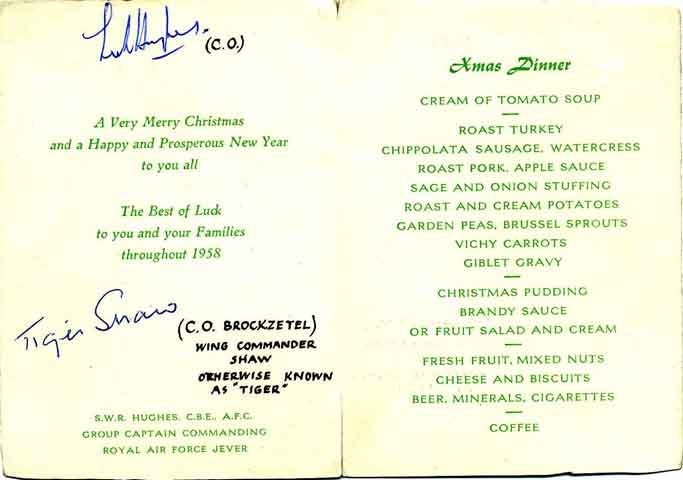 Hughes.
(C.O.)
A Very Merry Christmas
and a Happy and Prosperous New Year
to you all
The Best of Luck
to you and your Families
throughout 1958
Tiger Shaw
(C.O. BROCKZETEL)
WING COMMANDER
SHAW
OTHERWISE KNOWN
AS "TIGER"
S.W.R. HUGHES, C.B.E., A.F.C.
GROUP CAPTAIN COMMANDING
ROYAL AIR FORCE JEVER
Xmas Dinner
CREAM OF TOMATO SOUP
ROAST TURKEY
CHIPPOLATA SAUSAGE, WATERCRESS
ROAST PORK, APPLE SAUCE
SAGE AND ONION STUFFING
ROAST AND CREAM POTATOES
GARDEN PEAS, BRUSSEL SPROUTS
VICHY CARROTS
GIBLET GRAVY
CHRISTMAS PUDDING
BRANDY SAUCE
OR FRUIT SALAD AND CREAM
FRESH FRUIT, MIXED NUTS
CHEESE AND BISCUITS
BEER, MINERALS, CIGARETTES
COFFEE